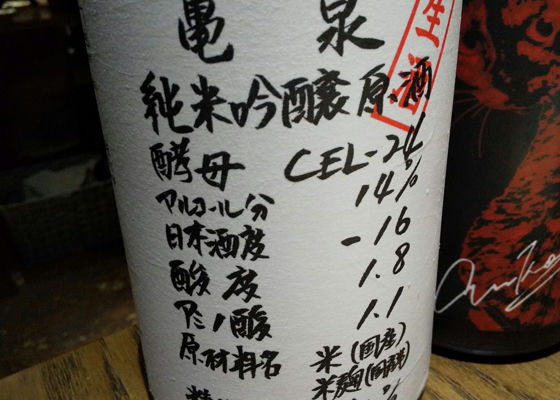 亀泉
純米吟醸原酒
酵母 CEL-24
アルコール分 14%
日本酒度 -16
酸度 1.8
アミノ酸 1.1
原材料名 米(国産)
米麹(国産米)